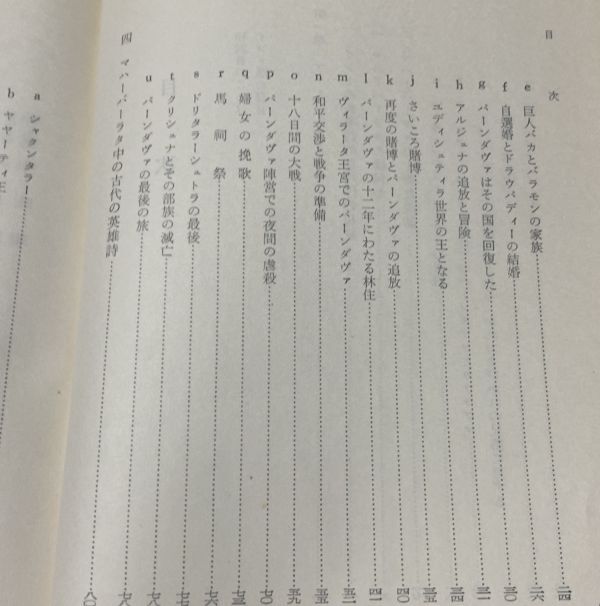 目 次
e 巨人バカとバラモンの家族 二四
f 自選婚とドラウパディーの結婚 二六
g パーンダヴァはその国を回復した 三〇
h アルジュナの追放と冒険 三一
i ユディシュティラ世界の王となる 三四
j さいころ賭博 三五
k 再度の賭博とパーンダヴァの追放 四〇
l パーンダヴァの十二年にわたる林住 四一
m ヴィラータ王宮でのパーンダヴァ 五二
n 和平交渉と戦争の準備 五五
o 十八日間の大戦 五九
p パーンダヴァ陣営での夜間の虐殺 七〇
q 婦女の挽歌 七三
r 馬祠祭 七六
s ドリタラーシュトラの最後 七七
t クリシュナとその部族の滅亡 七八
u パーンダヴァの最後の旅 七八
四 マハーバーラタ中の古代の英雄詩 八〇
a シャクンタラー
b ヤヤーティ王